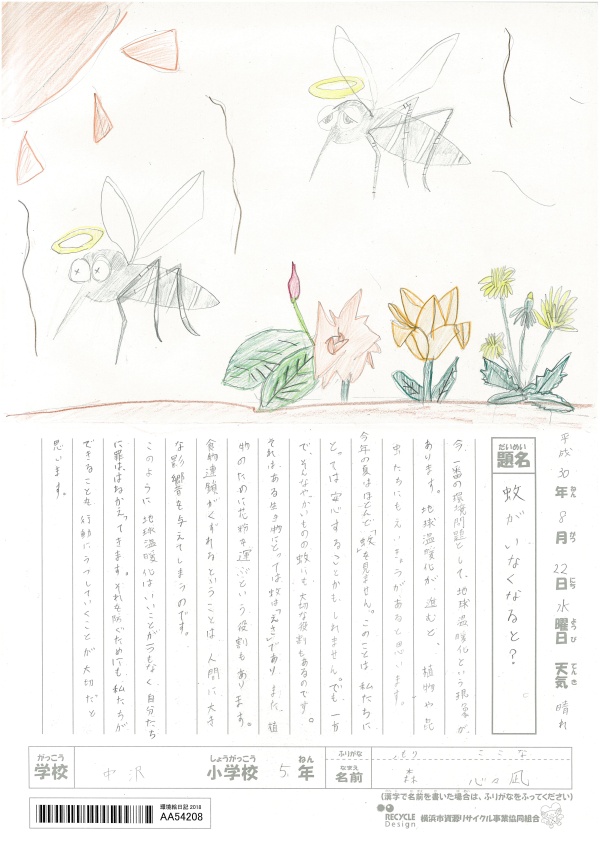 平成30年8月22日水曜日 天気 晴れ
ねん がつ にち ようび てんき
だいめい
題名 蚊がいなくなると？
今、一番の環境問題として、地球温暖化という現象が
あります。地球温暖化が進むと、植物や昆
虫たちにもえいきょうがあると思います。
今年の夏はほとんど「蚊」を見ません。このことは私たちに
とっては安心することかもしれません。でも、一方
で、そんなやっかいものの蚊にも大切な役割もあるのです。
それは、ある生き物にとっては蚊は「えさ」であり、また、植
物のために花粉を運ぶという役割もあります。
食物連鎖がくずれるということは、人間に大き
な影響を与えてしまうのです。
このように地球温暖化はいいことが一つもなく、自分たち
に罪ははねかえってきます。それを防ぐためにも私たちが
できることを行動にうつしていくことが大切だと
思います。
がっこう
学校 中沢 しょうがっこう
小学校 5年 ねん
ふりがな もり ここな
なまえ
名前 森 心々凪
(漢字で名前を書いた場合は、ふりがなをふってください)
環境絵日記 2018
AA54208
RECYCLE Design 横浜市資源リサイクル事業協同組合